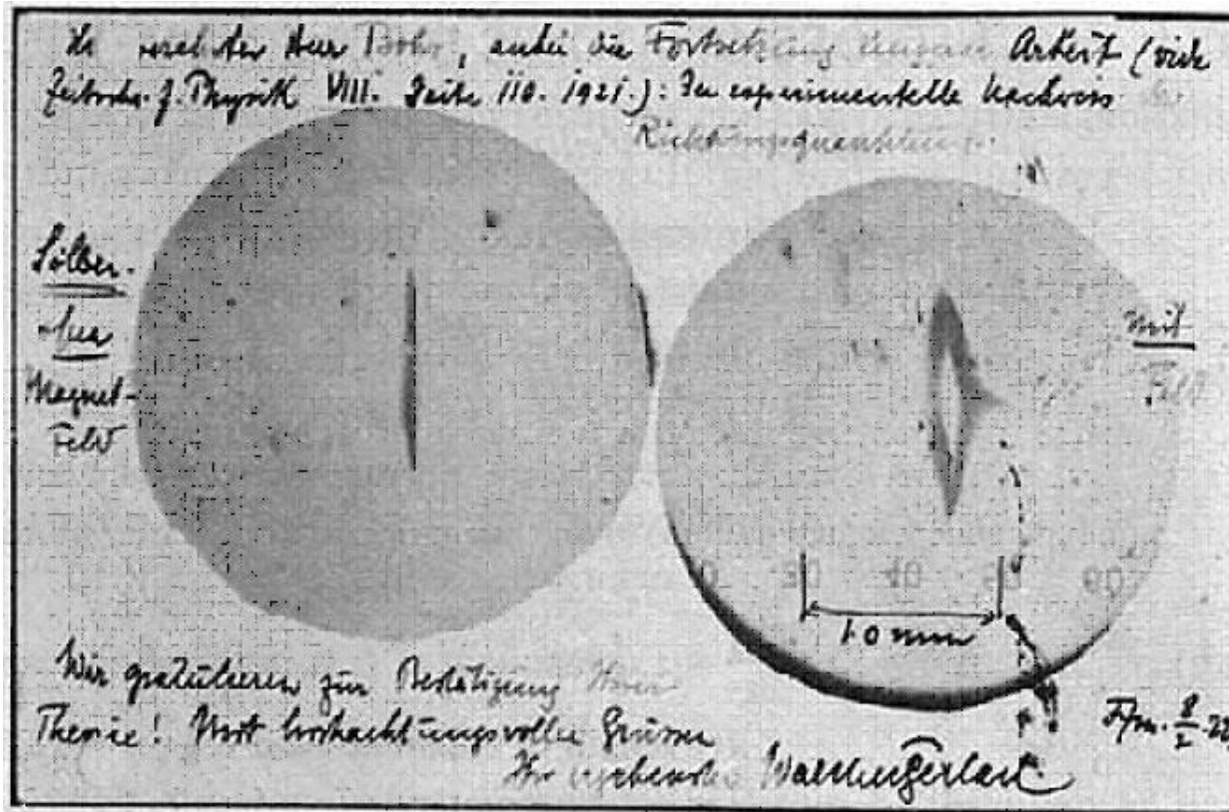 verehrter Herr Bohr, anbei die Fortsetzung unserer Arbeit (vide
Zeitschr. f. Physik VIII. Seite 110. 1921.): Der experimentelle Nachweis der
Richtungsquantelung.
Silber.
Magnet-
Feld
mit
Feld
0 30 40 50 60
1.0 mm
Wir gratulieren zur Bestätigung Ihrer
Theorie! Mit hochachtungsvollen Grüssen
Ihr ergebenster Walther Gerlach.
Ffm. 8/2. 22